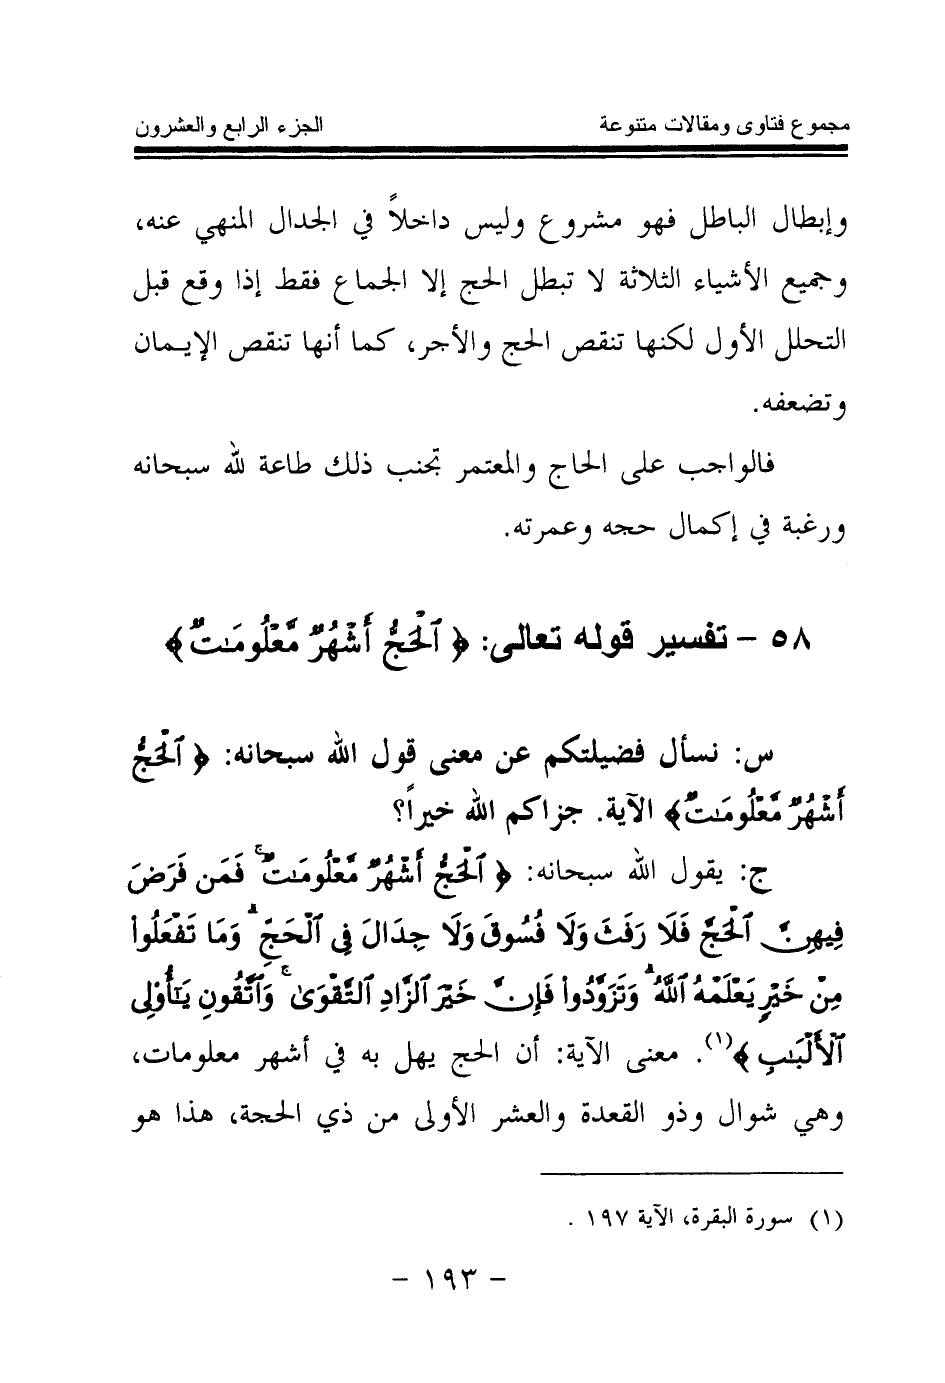 مجموع فتاوى ومقالات متنوعة الجزء الرابع والعشرون
وإبطال الباطل فهو مشروع وليس داخلاً في الجدال المنهي عنه،
وجميع الأشياء الثلاثة لا تبطل الحج إلا الجماع فقط إذا وقع قبل
التحلل الأول لكنها تنقص الحج والأجر، كما أنها تنقص الإيمان
وتضعفه.
فالواجب على الحاج والمعتمر تجنب ذلك طاعة لله سبحانه
ورغبة في إكمال حجه وعمرته.
٥٨ - تفسير قوله تعالى: ﴿ ٱلْحَجُّ أَشْهُرٌ مَّعْلُومَـٰتٌ ﴾
س: نسأل فضيلتكم عن معنى قول الله سبحانه: ﴿ ٱلْحَجُّ
أَشْهُرٌ مَّعْلُومَـٰتٌ ﴾ الآية. جزاكم الله خيراً؟
ج: يقول الله سبحانه: ﴿ ٱلْحَجُّ أَشْهُرٌ مَّعْلُومَـٰتٌ ۚ فَمَن فَرَضَ
فِيهِنَّ ٱلْحَجَّ فَلَا رَفَثَ وَلَا فُسُوقَ وَلَا جِدَالَ فِى ٱلْحَجِّ ۗ وَمَا تَفْعَلُوا۟
مِنْ خَيْرٍ يَعْلَمْهُ ٱللَّهُ ۗ وَتَزَوَّدُوا۟ فَإِنَّ خَيْرَ ٱلزَّادِ ٱلتَّقْوَىٰ ۚ وَٱتَّقُونِ يَـٰٓأُو۟لِى
ٱلْأَلْبَـٰبِ ﴾(١). معنى الآية: أن الحج يهل به في أشهر معلومات،
وهي شوال وذو القعدة والعشر الأولى من ذي الحجة، هذا هو
(١) سورة البقرة، الآية ١٩٧ .
- ١٩٣ -